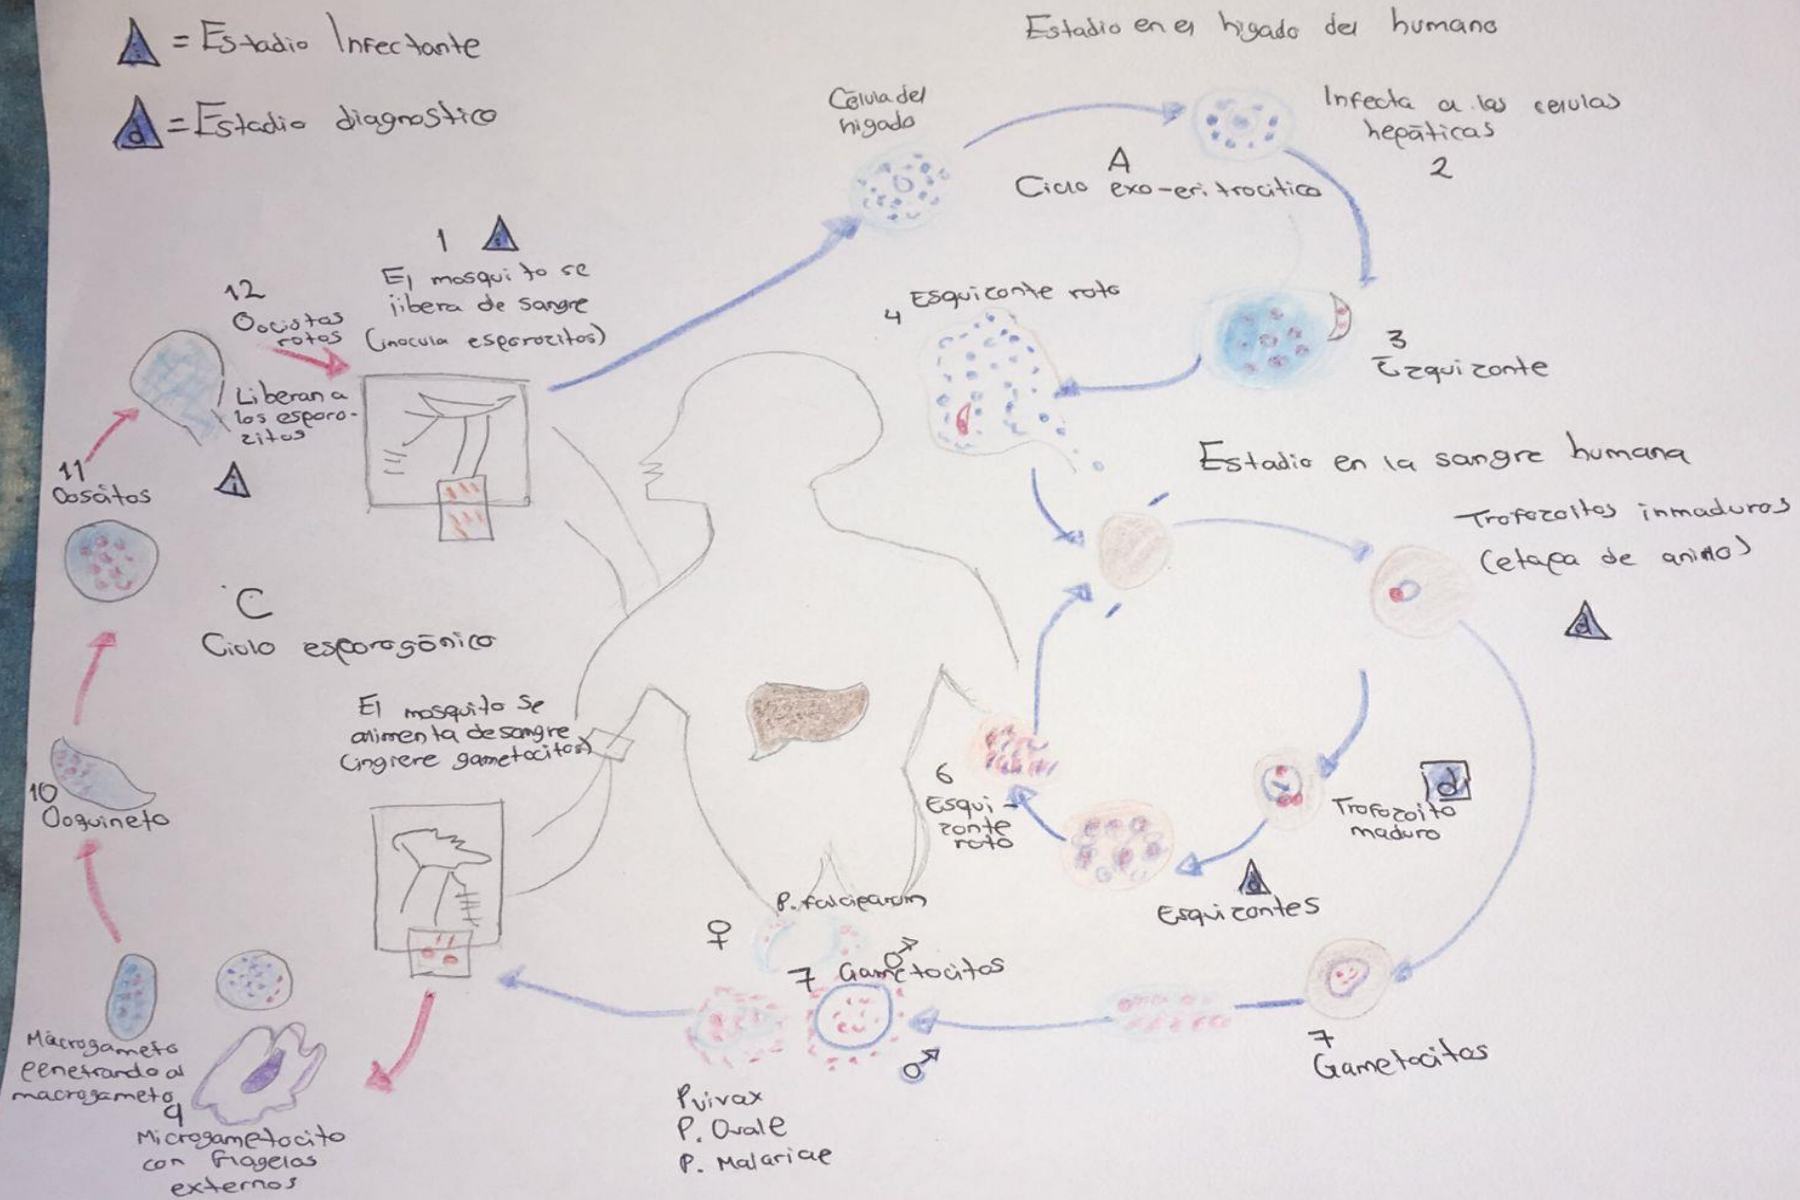 i = Estadio Infectante
d = Estadio diagnostico
Estadio en el higado del humano
Célula del
higado
Infecta a las celulas
hepáticas
2
A
Ciclo exo-eritrocitico
1
El mosquito se
libera de sangre
(inocula esporozitos)
12
Oocistos
rotos
Liberan a
los esporo-
zitos
i
4 Esquizonte roto
3
Ezquizonte
11
Ooscitos
Estadio en la sangre humana
Trofozoitos inmaduros
(etapa de anillo)
d
C
Ciclo esporogónico
El mosquito se
alimenta de sangre
(ingiere gametocitos)
10
Ooquineto
6
Esqui-
zonte
roto
d
Trofozoito
maduro
d
Esquizontes
P. falciparum
♀
♂
7 Gametocitos
♂
7
Gametocitos
Macrogameto
penetrando al
macrogameto
9
Microgametocito
con flagelos
externos
P vivax
P. Ovale
P. Malariae